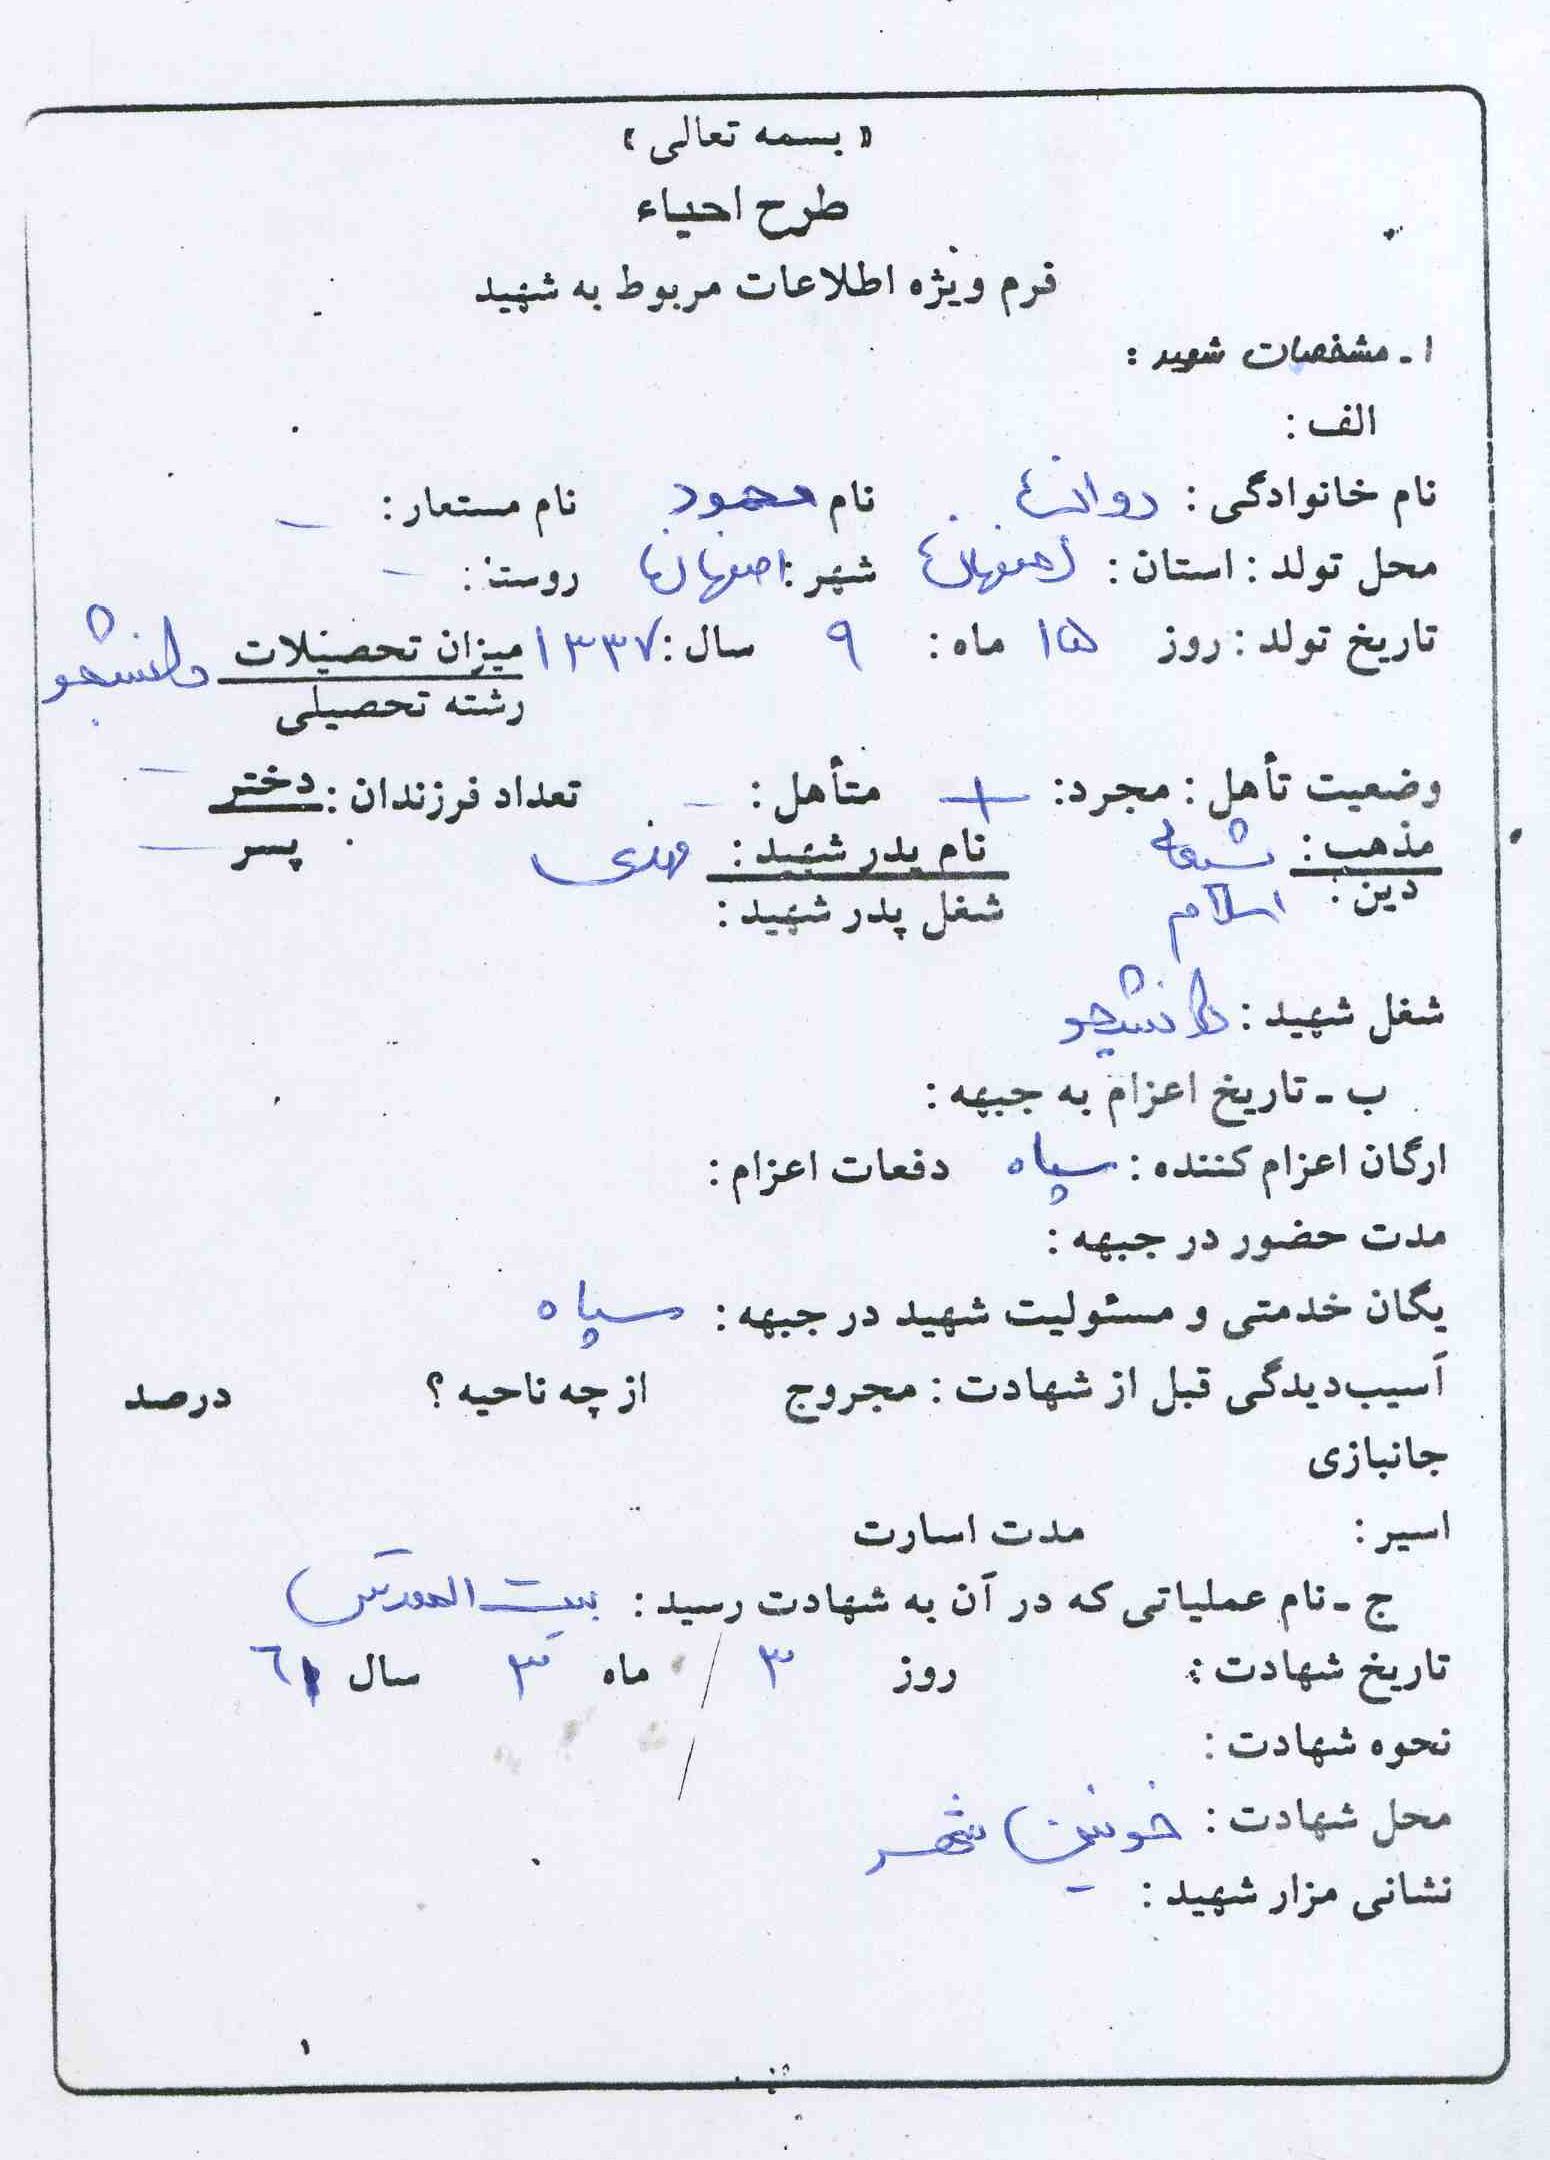 « بسمه تعالی »
طرح احیاء
فرم ویژه اطلاعات مربوط به شهید
۱ - مشخصات شهید :
الف :
نام خانوادگی : نام محمود نام مستعار : –
محل تولد : استان : اصفهان شهر : اصفهان روستا : –
تاریخ تولد : روز ۱۵ ماه : ۹ سال : ۱۳۳۷ میزان تحصیلات دانشجو
رشته تحصیلی
وضعیت تأهل : مجرد : + متأهل : – تعداد فرزندان : دختر –
مذهب : شیعه نام پدر شهید : مهدی پسر –
دین : اسلام شغل پدر شهید :
شغل شهید : دانشجو
ب - تاریخ اعزام به جبهه :
ارگان اعزام کننده : سپاه دفعات اعزام :
مدت حضور در جبهه :
یگان خدمتی و مسئولیت شهید در جبهه : سپاه
آسیب‌دیدگی قبل از شهادت : مجروح از چه ناحیه ؟ درصد
جانبازی
اسیر : مدت اسارت
ج - نام عملیاتی که در آن به شهادت رسید : بیت المقدس
تاریخ شهادت : روز ۳ ماه ۳ سال ۶۱
نحوه شهادت :
محل شهادت : خونین شهر
نشانی مزار شهید :
۱